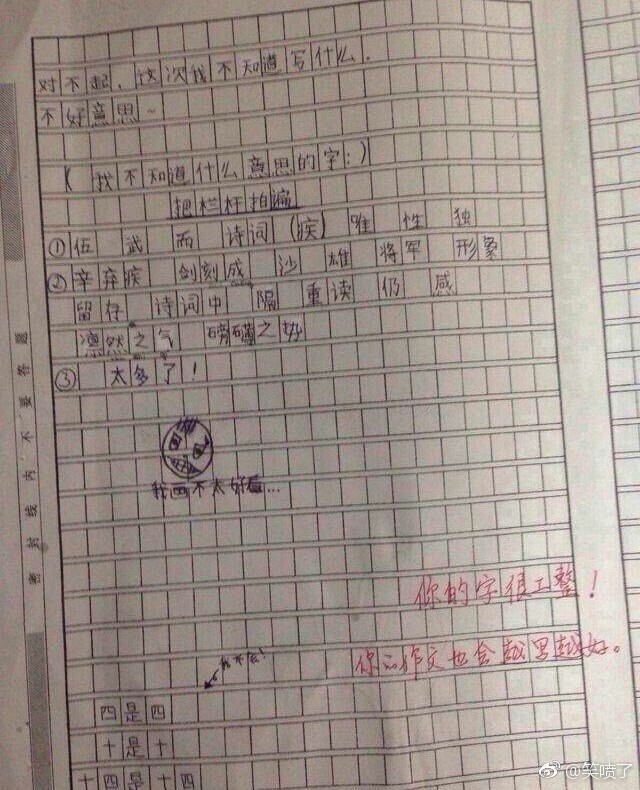 对不起，这次我不知道写什么.
不好意思~
( 我不知道什么意思的字:)
把栏杆拍遍
① 伍 武 而 诗词 (疾) 唯 性 独
② 辛弃疾 剑刻成 沙 雄 将军 形象
留存 诗词中 隔 重读 仍 感
凛然之气 磅礴之势
③ 太多了!
我画不太好看...
你的字很工整！
你的作文也会越写越好。
我不会!
四是四
十是十
十四是十四
密封线内不要答题
@笑喷了